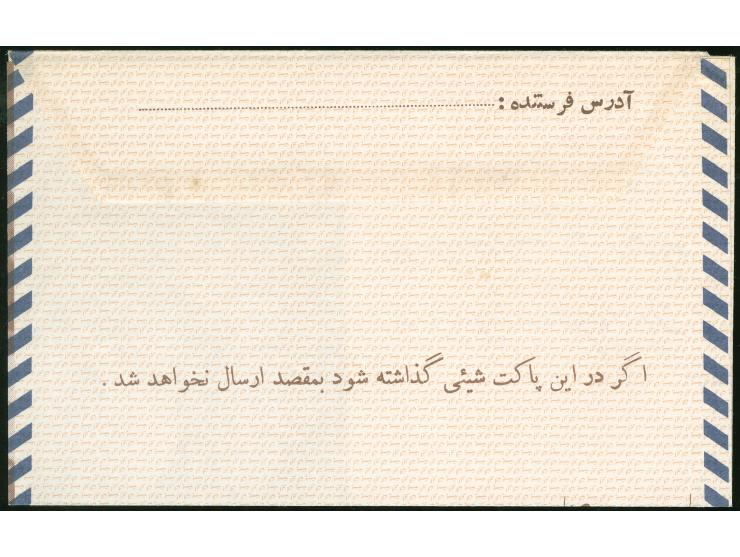 آدرس فرستنده : ........................................
اگر در این پاکت شیئی گذاشته شود بمقصد ارسال نخواهد شد .